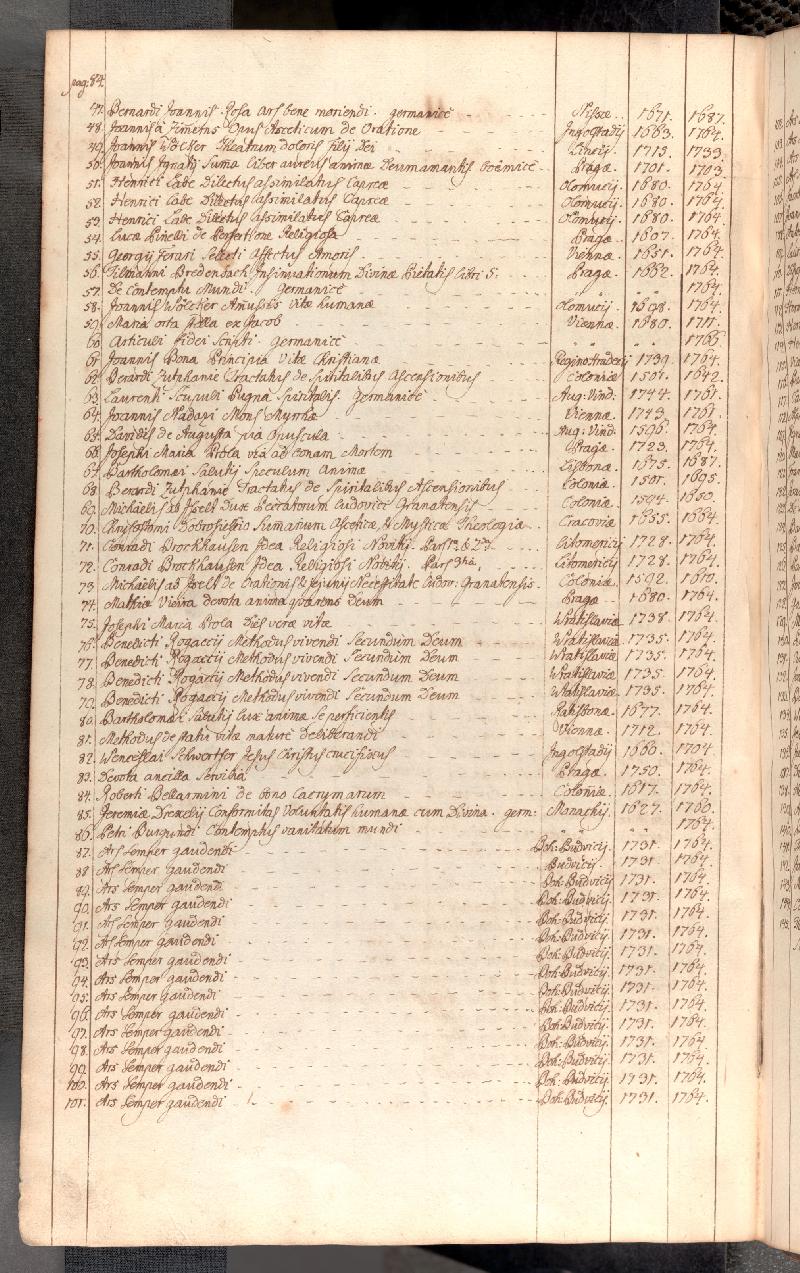 pag: 84.
47. Bernardi Joannis Rosa Ars bene moriendi. germanicè Nissæ. 1671. 1687.
48. Joannis à Opus Asceticum de Oratione Ingolstadij 1663. 1764.
49. Joannis Wölcker Theatrum doloris filij Dei 1713. 1733.
50. Joannis Ignatij liber aureus animæ Deum amantis boëmicè Pragæ. 1701. 1703
51. Henrici Labe Dilectus assimilatus Capreæ Olomucij 1680. 1764.
52. Henrici Labe Dilectus assimilatus Capreæ Olomucij 1680. 1764.
53. Henrici Labe Dilectus assimilatus Capreæ Olomucij 1680. 1764.
54. Lucæ Pinelli de Perfectione Religiosa Pragæ 1607. 1764.
55. Georgij Ferari Selecti Affectus Amoris Viennæ 1651. 1764.
56. Tilmanni Bredenbach Insinuationum Divinæ Pietatis libri 5. Pragæ. 1662. 1764.
57. De Contemptu Mundi. germanicè 1764.
58. Joannis Wölcker Amussis vitæ humanæ Olomucij 1698. 1764.
59. Maria orta stella ex Jacob Viennæ 1680. 1717.
60. Articuli fidei scripti germanicè 1766.
61. Joannis Bona Principia Vitæ Christianæ Reginohradecij 1739. 1764.
62. Berardi Zutphaniæ Tractatus de Spiritalibus Ascensionibus Coloniæ 1501. 1642.
63. Laurentij Scupuli Pugna Spiritalis. Germanicè Aug: Vind: 1744. 1761.
64. Joannis Nadazi Mons Myrrhæ Viennæ 1743. 1761.
65. Davidis de Augusta pia Opuscula Aug: Vind. 1596. 1764.
66. Josephi Mariæ Prola via ad bonam Mortem Pragæ 1723. 1764.
67. Bartholomæi Salutij Speculum Animæ 1675. 1687.
68. Berardi Zutphaniæ Tractatus de Spiritalibus Ascensionibus Coloniæ 1501. 1695.
69. Michaelis ab Isselt Dux Peccatorum Ludovici Granatensis Coloniæ 1594. 1650.
70. Chrysostomi Dobrosielsio Sumarium Asceticæ & Mysticæ Theologiæ Cracoviæ 1655. 1664.
71. Conradi Brockhausen Idea Religiosi Novitij. Pars 1ma & 2da Litomericij 1728. 1764.
72. Conradi Brockhausen Idea Religiosi Novitij. Pars 3tia. Litomericij 1728. 1764.
73. Michaelis ab Isselt de Orationis & Jejunij Necessitate Ludov: Granatensis Coloniæ. 1592. 1610.
74. Mathiæ Vieira devota anima quærens Deum Pragæ 1680. 1764.
75. Josephi Mariæ Prola Dies veræ vitæ Wratislaviæ 1738. 1764.
76. Benedicti Rogaccij Methodus vivendi Secundum Deum Wratislaviæ 1735. 1764.
77. Benedicti Rogaccij Methodus vivendi Secundum Deum Wratislaviæ 1735. 1764.
78. Benedicti Rogaccij Methodus vivendi Secundum Deum Wratislaviæ 1735. 1764.
79. Benedicti Rogaccij Methodus vivendi Secundum Deum Wratislaviæ 1735. 1764.
80. Bartholomæi Salutij Lux animæ se perficientis Ratisbonæ. 1677. 1764.
81. Methodus de statu vitæ maturè deliberandi Viennæ. 1712. 1764.
82. Wenceslai Schwertfer Jesus Christus crucifixus Ingolstadij 1660. 1704
83. Devota ancilla Pragæ. 1750. 1764.
84. Roberti Bellarmini de bono Lacrymarum Coloniæ 1617. 1764.
85. Jeremiæ Drexelij Conformitas Voluntatis humanæ cum Divina. germ: Monachij 1627. 1760.
86. Petri Burgundi Contemptus vanitatum mundi 1764.
87. Ars semper gaudendi Boh: Budvicij. 1731. 1764.
88. Ars semper gaudendi Budvicij 1731. 1764.
89. Ars semper gaudendi Boh: Budvicij 1731. 1764.
90. Ars semper gaudendi Boh: Budvicij 1731. 1764.
91. Ars semper gaudendi Boh: Budvicij 1731. 1764.
92. Ars semper gaudendi Boh: Budvicij 1731. 1764.
93. Ars semper gaudendi Boh: Budvicij 1731. 1764.
94. Ars semper gaudendi Boh: Budvicij 1731. 1764.
95. Ars semper gaudendi Boh: Budvicij 1731. 1764.
96. Ars semper gaudendi Boh: Budvicij 1731. 1764.
97. Ars semper gaudendi Boh: Budvicij 1731. 1764.
98. Ars semper gaudendi Boh: Budvicij 1731. 1764.
99. Ars semper gaudendi Boh: Budvicij. 1731. 1764.
100. Ars semper gaudendi Boh: Budvicij 1731. 1764.
101. Ars semper gaudendi Boh: Budvicij. 1731. 1764.